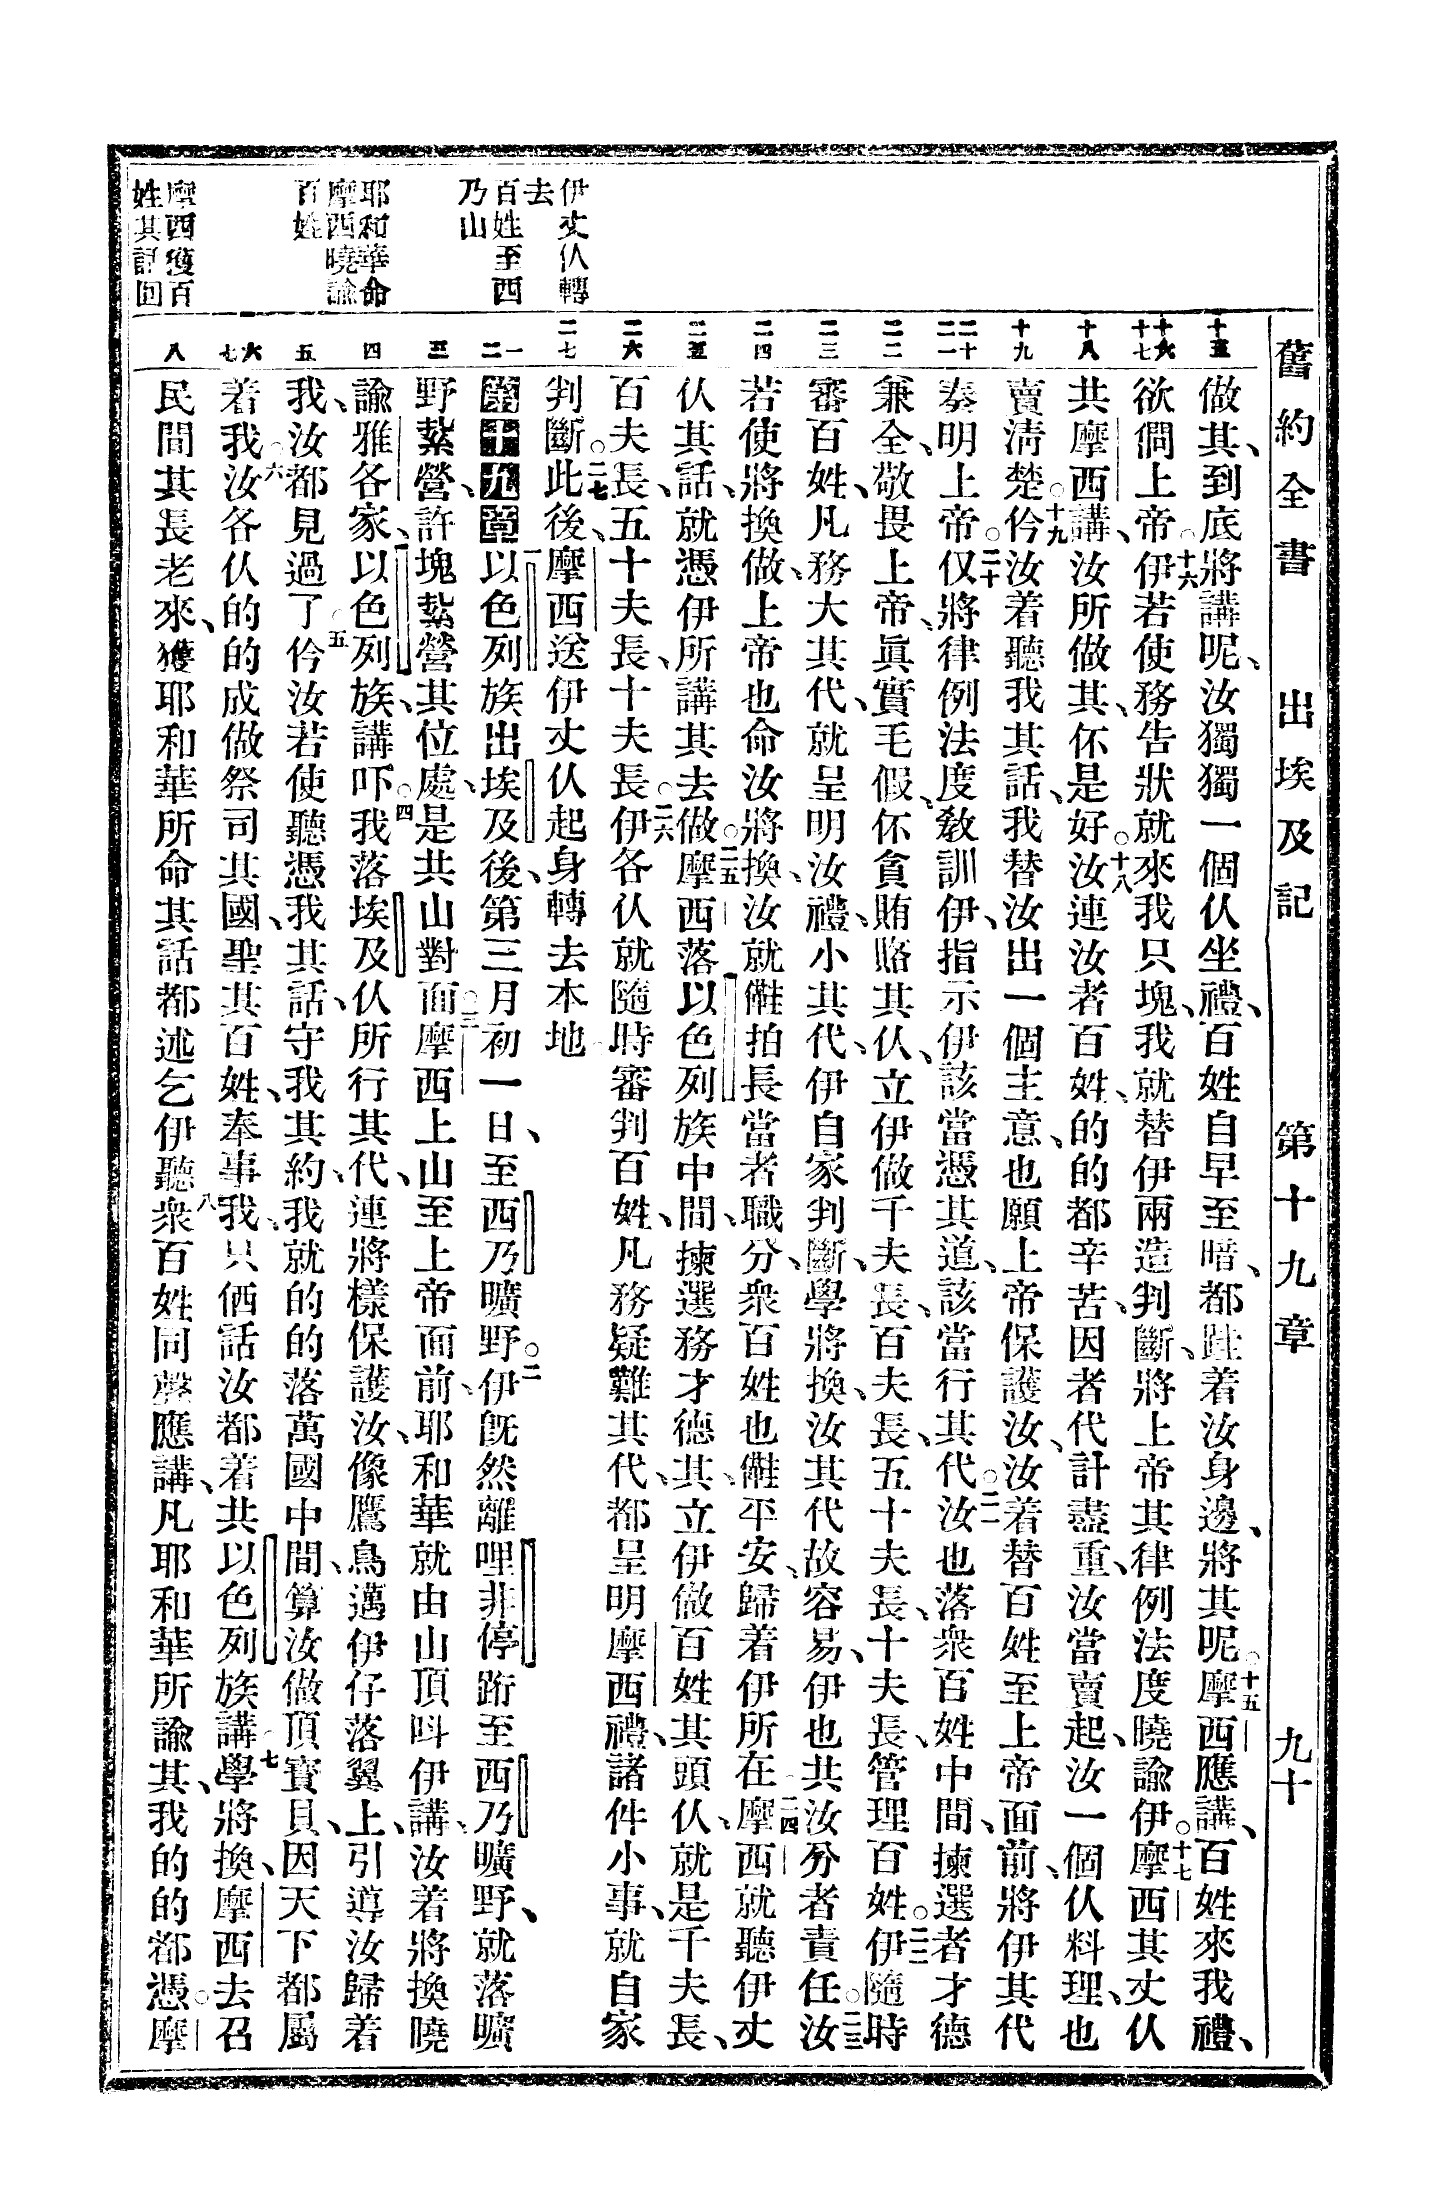 舊約全書 出埃及記 第十九章 九十
伊丈仈轉
去
百姓至西
乃山
耶和華命
摩西曉諭
百姓
摩西獲百
姓其記回
十五
十六 十七
十八
十九
二十 二一
二二
二三
二四
二五
二六
二七
一 二
三
四
五
六 七
八
做其、到底將講呢、汝獨獨一個仈坐禮、百姓自早至暗、都跬着汝身邊、將其呢。十五摩西應講、百姓來我禮、
欲僩上帝。十六伊若使務告狀就來我只塊、我就替伊兩造判斷、將上帝其律例法度曉諭伊。十七摩西其丈仈
共摩西講、汝所做其、伓是好。十八汝連汝者百姓、的的都辛苦、因者代計盡重、汝當賣起、汝一個仈料理、也
賣淸楚。十九仱汝着聽我其話、我替汝出一個主意、也願上帝保護汝、汝着替百姓至上帝面前、將伊其代
奏明上帝。二十仅將律例法度敎訓伊、指示伊該當憑其道、該當行其代。二一汝也落衆百姓中間、揀選者才德
兼全、敬畏上帝、眞實毛假、伓貪賄賂其仈、立伊做千夫長、百夫長、五十夫長、十夫長、管理百姓。二二伊隨時
審百姓、凡務大其代、就呈明汝禮、小其代、伊自家判斷、學將換、汝其代故容易、伊也共汝分者責任。二三汝
若使將換做、上帝也命汝將換、汝就𠎥拍長當者職分、衆百姓也𠎥平安、歸着伊所在。二四摩西就聽伊丈
仈其話、就憑伊所講其去做。二五摩西落以色列族中間、揀選務才德其、立伊做百姓其頭仈、就是千夫長、
百夫長、五十夫長、十夫長。二六伊各仈就隨時審判百姓、凡務疑難其代、都呈明摩西禮、諸件小事、就自家
判斷。二七此後、摩西送伊丈仈起身、轉去本地。
第十九章 一以色列族出埃及後、第三月初一日、至西乃曠野。二伊旣然離哩非停跡至西乃曠野、就落曠
野紮營、許塊紮營其位處、是共山對面。三摩西上山至上帝面前、耶和華就由山頂呌伊講、汝着將換曉
諭雅各家、以色列族、講吓。四我落埃及仈所行其代、連將樣保護汝、像鷹鳥邁伊仔落翼上、引導汝歸着
我、汝都見過了。五仱汝若使聽憑我其話、守我其約、我就的的落萬國中間、算汝做頂寶貝、因天下都屬
着我。六汝各仈的的成做祭司其國、聖其百姓、奉事我、只𠐁話汝都着共以色列族講。七學將換、摩西去召
民間其長老來、獲耶和華所命其話都述乞伊聽。八衆百姓同聲應講、凡耶和華所諭其、我的的都憑。摩